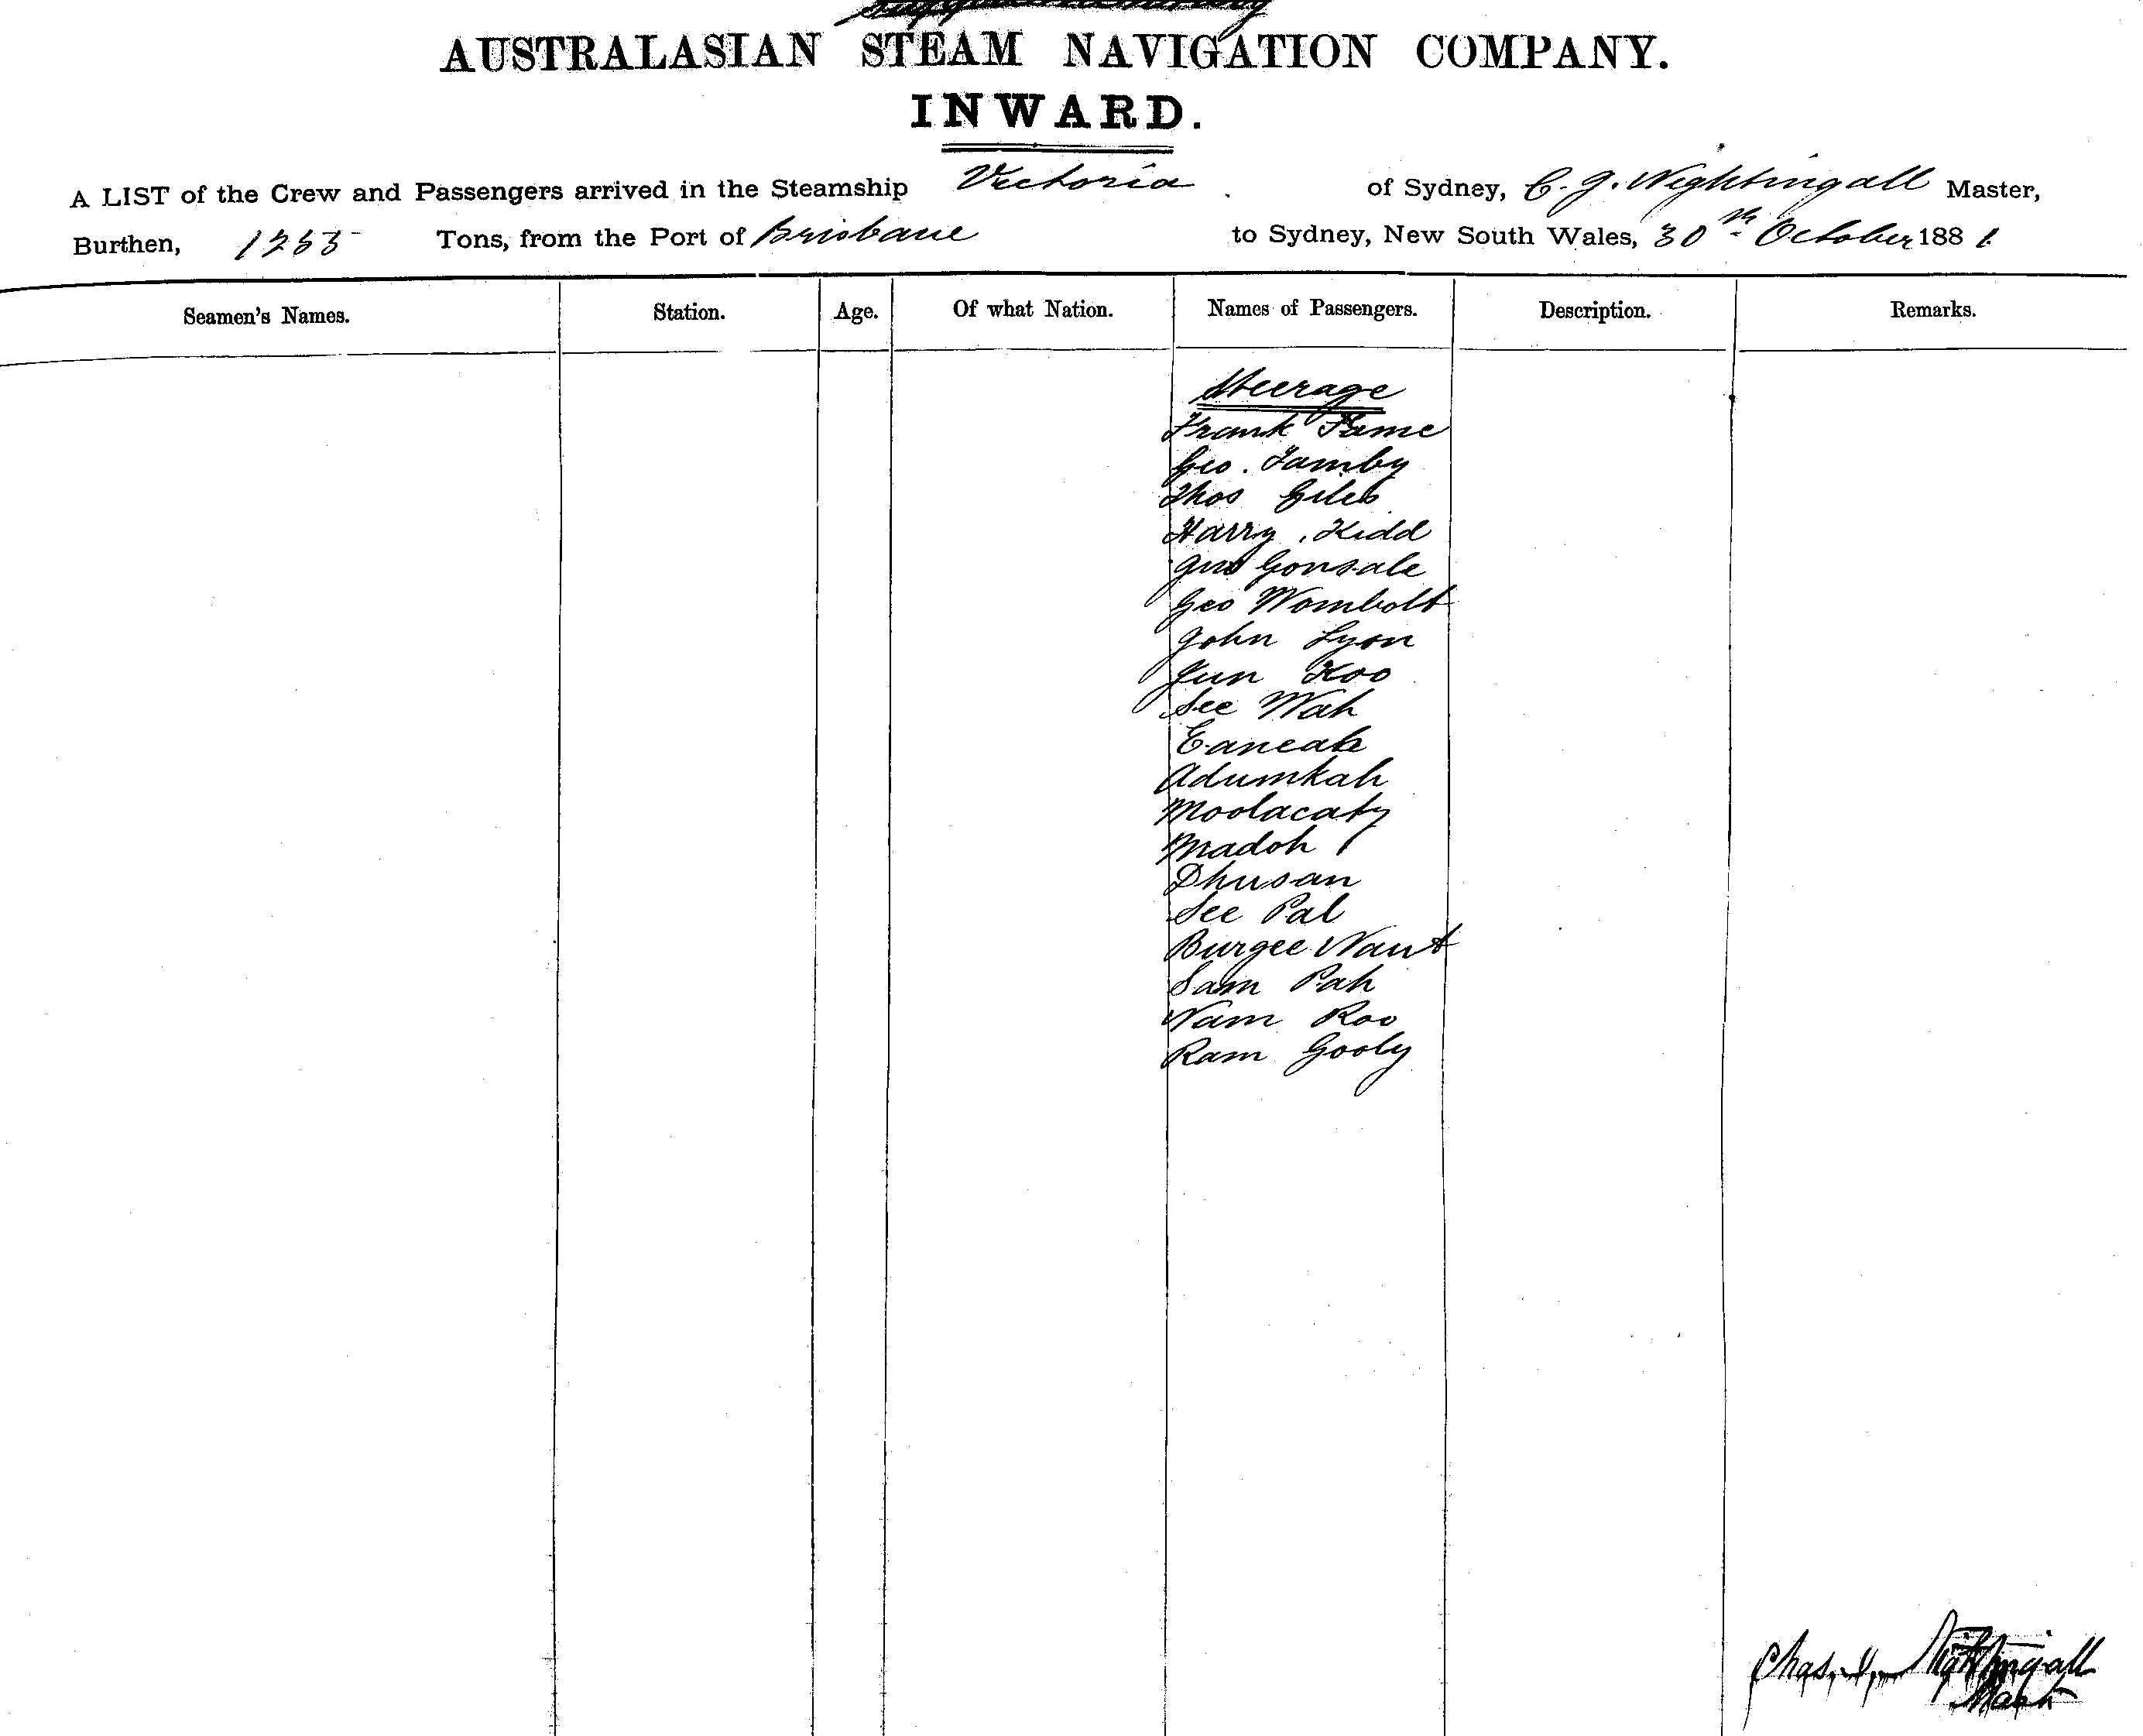 Supplementary
AUSTRALASIAN STEAM NAVIGATION COMPANY.
INWARD.
A LIST of the Crew and Passengers arrived in the Steamship Victoria of Sydney, C. J. Nightingall Master,
Burthen, 1253 Tons, from the Port of Brisbane to Sydney, New South Wales, 30th October 1881.
Seamen's Names. Station. Age. Of what Nation. Names of Passengers. Description. Remarks.
Steerage
Frank Fame
Geo. Tamby
Thos Giles
Harry Kidd
Gonsale
Geo Wombolt
John Lyon
Jun Koo
See Wah
Eaneah
Adumkah
Moolacaty
Madoh
Dhusan
See Pal
Burgee Naut
Sam Pah
Nam Roo
Ram Gooly
Chas. J. Nightingall
Mastr